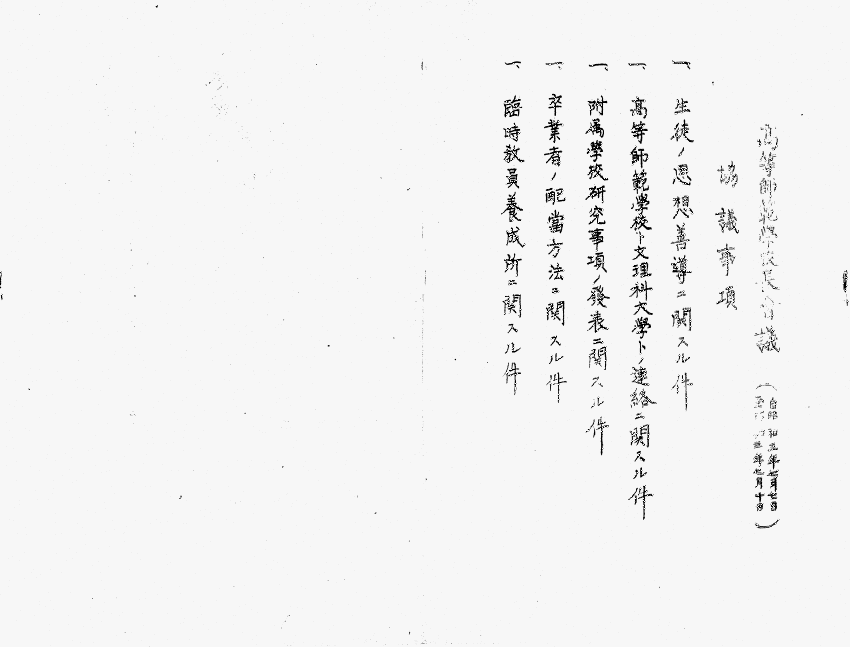 高等師範學校長會議
(自昭和五年七月七日
至同 五年七月十日)
協議事項
一、生徒ノ思想善導ニ関スル件
一、高等師範學校ト文理科大學トノ連絡ニ関スル件
一、附属學校研究事項ノ發表ニ関スル件
一、卒業者ノ配當方法ニ関スル件
一、臨時教員養成所ニ関スル件